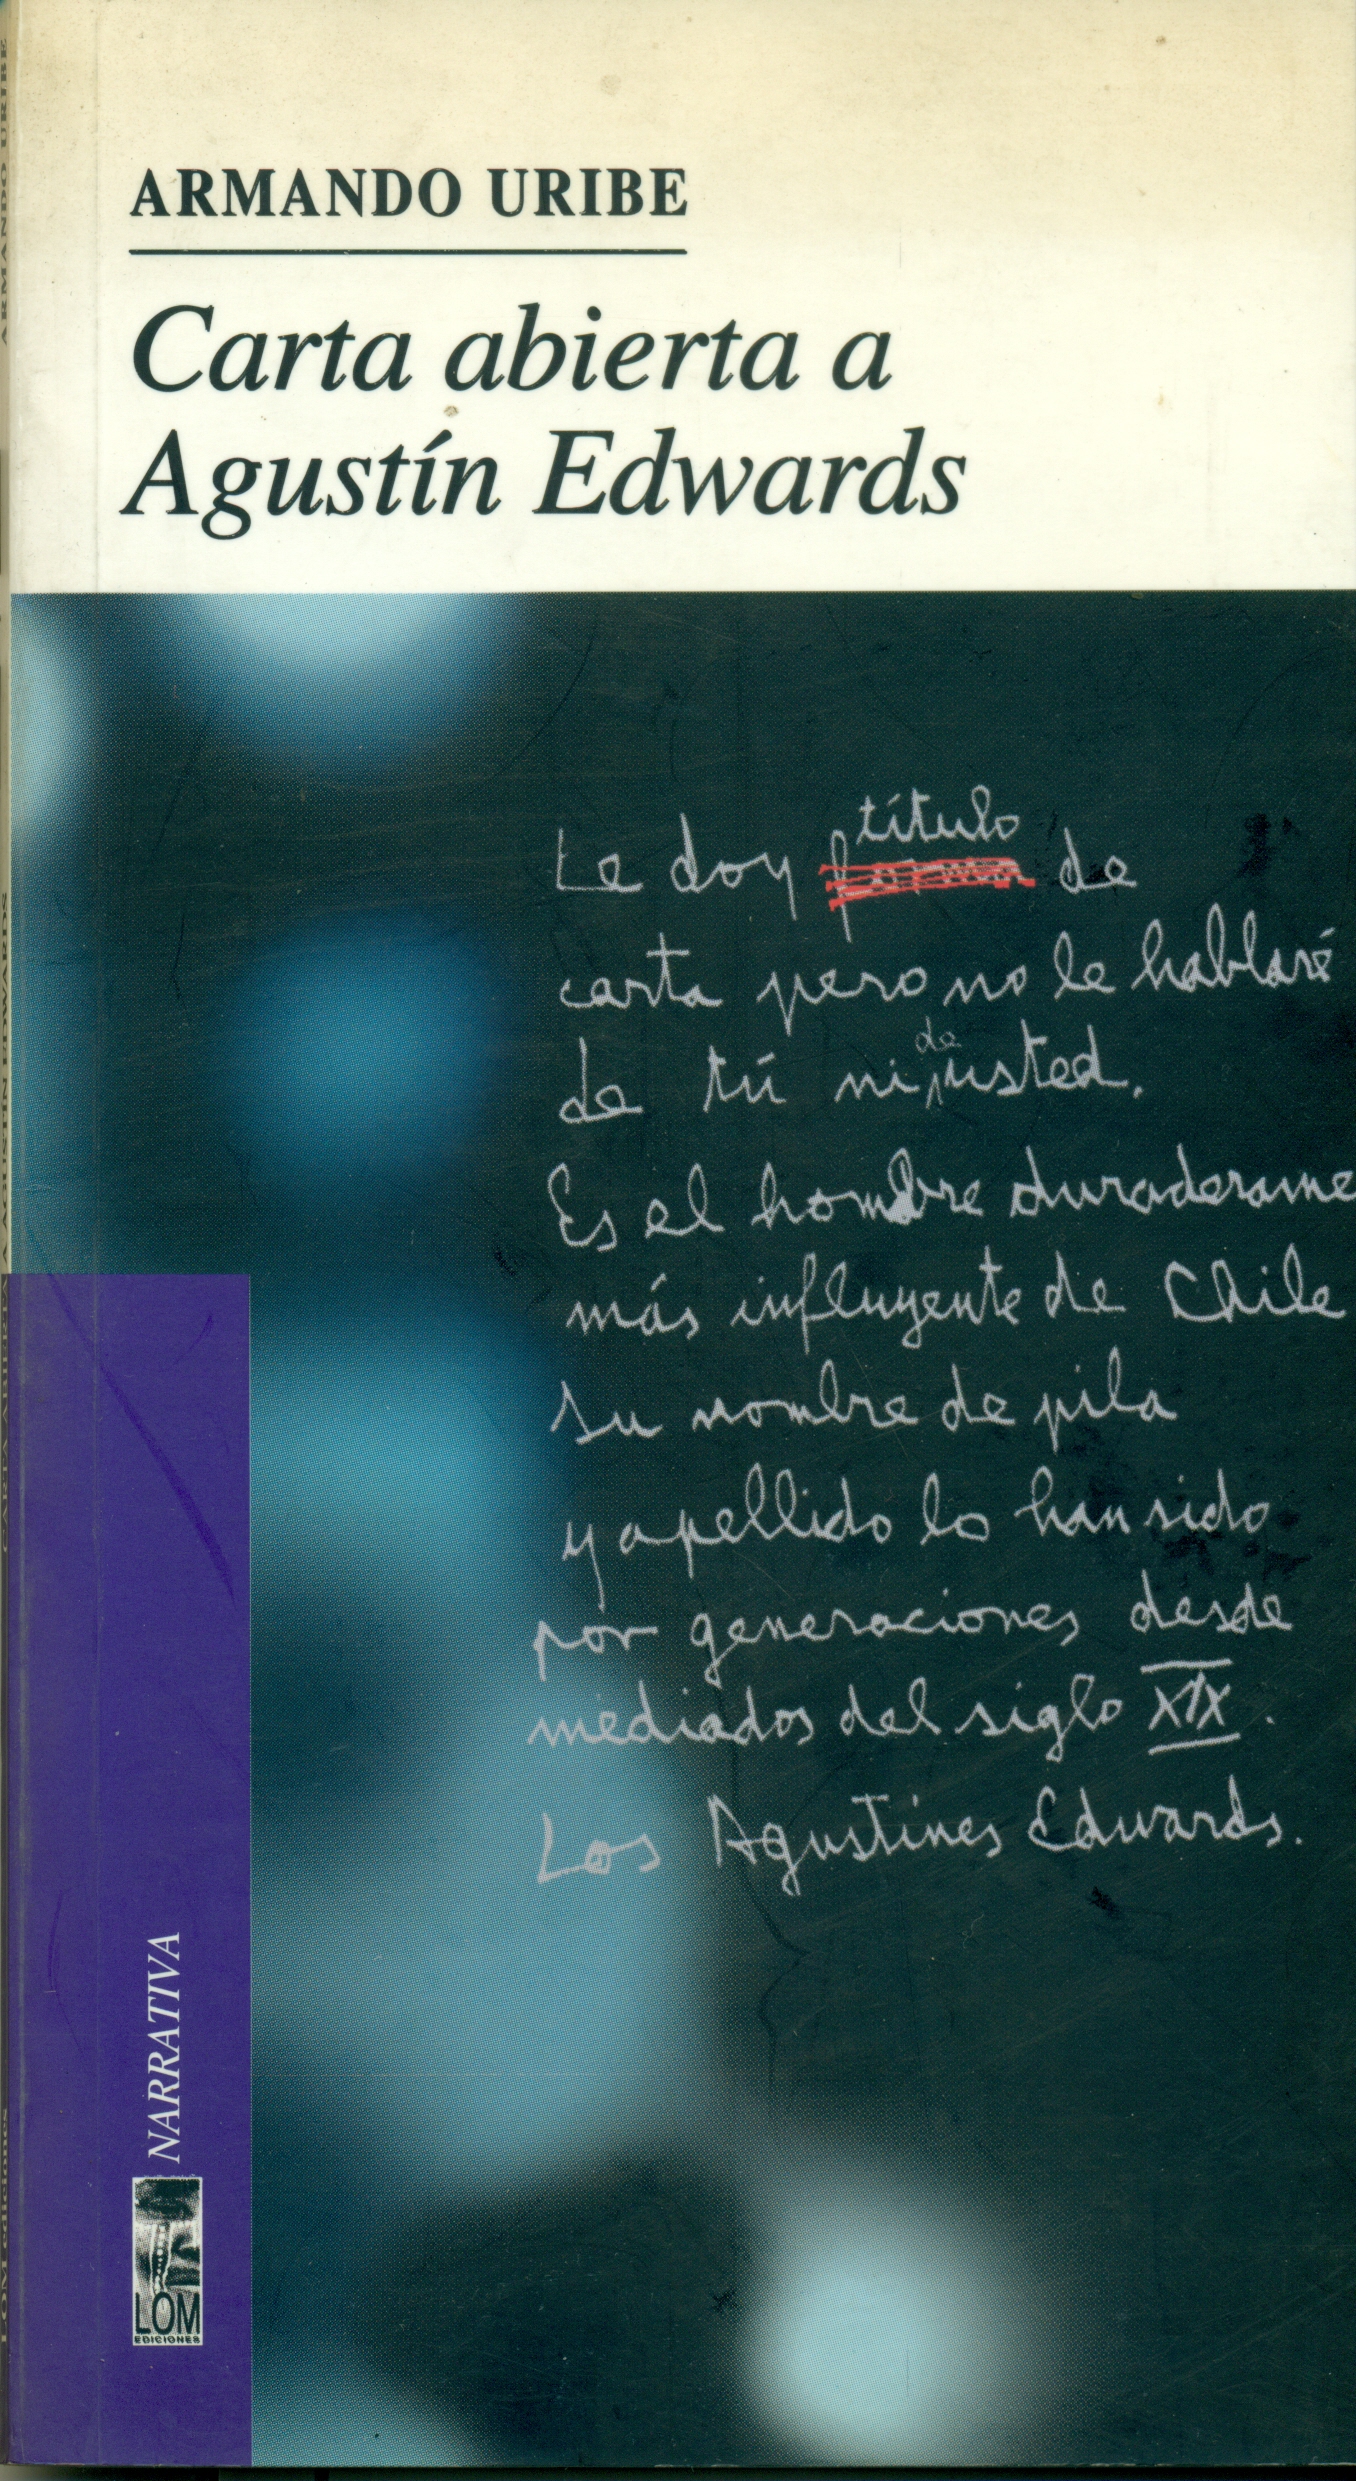 ARMANDO URIBE
Carta abierta a
Agustín Edwards
título
Le doy forma de
carta pero no le hablaré
de
de tú ni usted.
Es el hombre duraderame
más influyente de Chile
Su nombre de pila
y apellido lo han sido
por generaciones desde
mediados del siglo XIX.
Los Agustines Edwards.
NARRATIVA
LOM
EDICIONES
ARMANDO URIBE
CARTA ABIERTA A AGUSTÍN EDWARDS
LOM ediciones